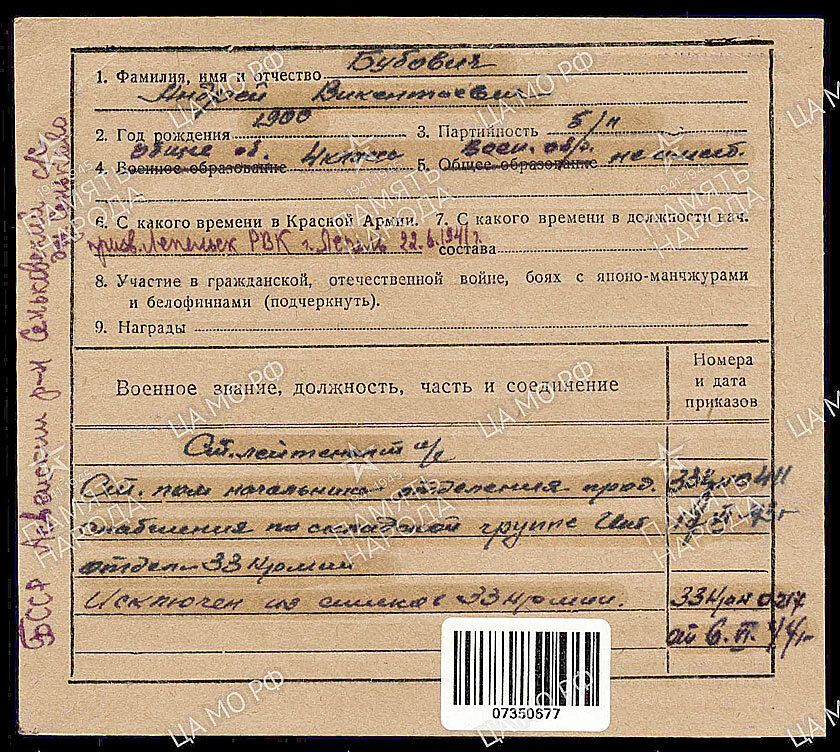 1. Фамилия, имя и отчество Бубович
Андрей Викентьевич
2. Год рождения 1900 3. Партийность б/п
общее об. 4 класса воен. обр. не имеет.
4. Военное образование 5. Общее образование
6. С какого времени в Красной Армии. 7. С какого времени в должности нач.
призв. Лепельск РВК г. Лепель 22.6.1941г. состава
8. Участие в гражданской, отечественной войне, боях с японо-манчжурами
и белофиннами (подчеркнуть).
9. Награды
Военное звание, должность, часть и соединение
Номера
и дата
приказов
Ст. лейтенант и/с
Ст. пом начальника отделения прод. 33 0411
снабжения по складской группе Инт 43г
отдела 33 Армии
Исключен из списков 33 Армии. 33 Арм 0217
от 6. 44г
БССР р-н Сеньковский с/с
07350677
ЦА МО РФ
ПАМЯТЬ
НАРОДА
1941-1945